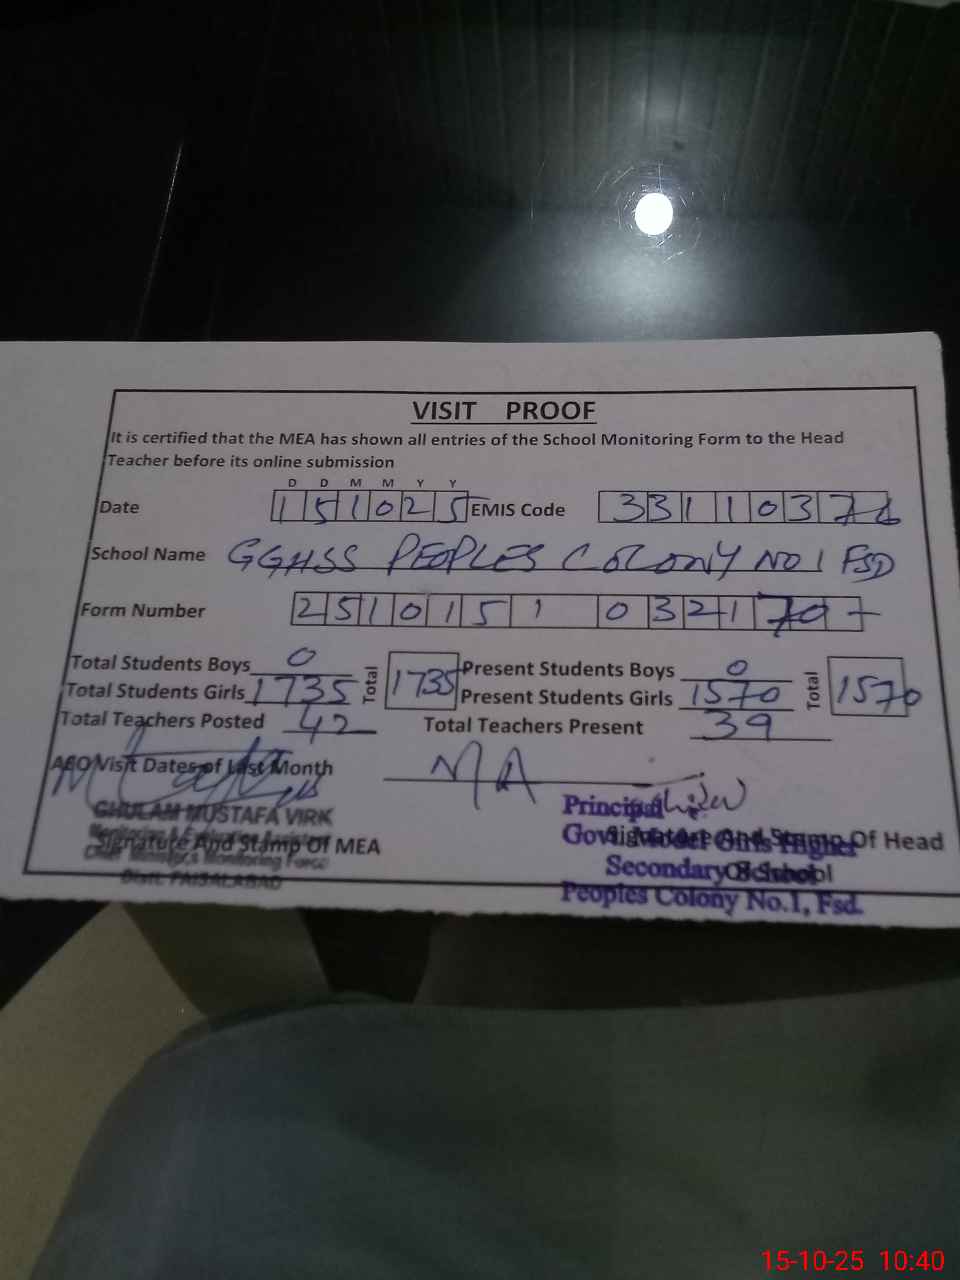 VISIT PROOF
It is certified that the MEA has shown all entries of the School Monitoring Form to the Head
Teacher before its online submission
D D M M Y Y
Date 151025 EMIS Code 33110376
School Name GGHSS PEOPLES COLONY NO 1 FSD
Form Number 251015 1 0321
Total Students Boys 0 Total 1735 Present Students Boys 0 Total 1570
Total Students Girls 1735 Present Students Girls 1570
Total Teachers Posted 42 Total Teachers Present 39
AEO Visit Dates of Last Month NA
GHULAM MUSTAFA VIRK
Monitoring & Evaluation Assistant
Signature And Stamp Of MEA
Chief Minister's Monitoring Force
Distt. FAISALABAD
Principal
Govt. Model Girls Higher
Signature And Stamp Of Head
Secondary School
Of School
Peoples Colony No.1, Fsd.
15-10-25 10:40